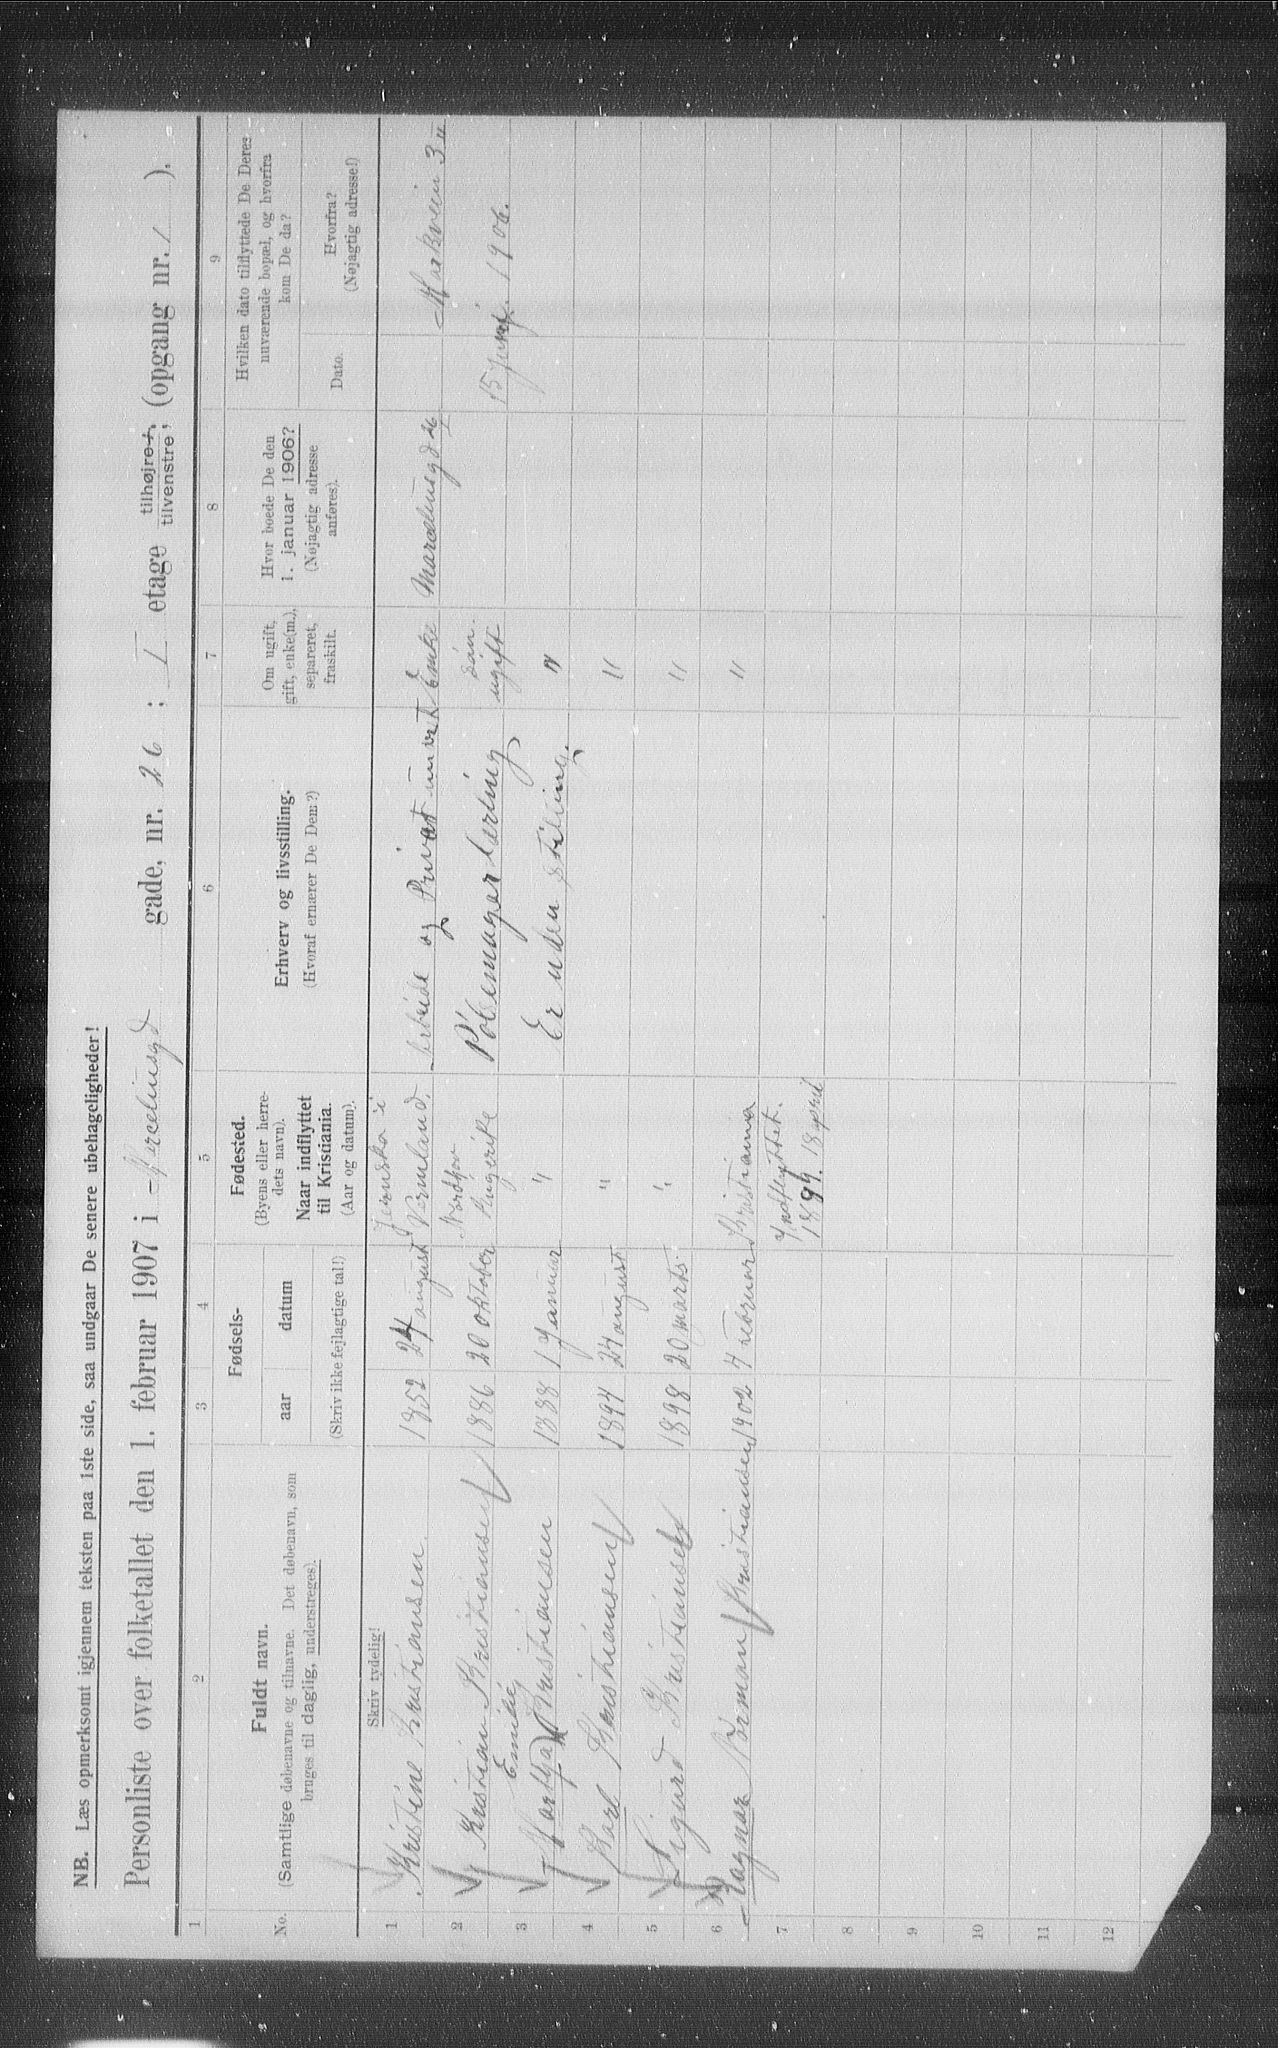 NB. Læs opmerksomt igjennem teksten paa 1ste side, saa undgaar De senere ubehageligheder!
Personliste over folketallet den 1. februar 1907 i Marceliusgd gade, nr. 26 ; I etage tilhøjre, tilvenstre, (opgang nr. 1 ).
1 2 3 4 5 6 7 8 9
No.
Fuldt navn.
(Samtlige døbenavne og tilnavne. Det døbenavn, som
bruges til daglig, understreges).
Fødsels-
aar datum
(Skriv ikke fejlagtige tal!)
Fødested.
(Byens eller herre-
dets navn).
Naar indflyttet
til Kristiania.
(Aar og datum).
Erhverv og livsstilling.
(Hvoraf ernærer De Dem?)
Om ugift,
gift, enke(m.),
separeret,
fraskilt.
Hvor boede De den
1. januar 1906?
(Nøjagtig adresse
anføres).
Hvilken dato tilflyttede De Deres
nuværende bopæl, og hvorfra
kom De da?
Dato.
Hvorfra?
(Nøjagtig adresse!)
Skriv tydelig!
1 Kristine Kristiansen 1852 24 august Vermland. og Privat Enke Marceliusgd 26 Markvein 3
2 Kristian Kristiansen 1886 20 oktober Nordhov Ringerike Pølsemager lærling søn. ugift 15 Juni 1906.
3 Emilé Kristiansen 1888 1 Januar " Er uden stilling. "
4 Karl Kristiansen 1894 24 august " "
5 Sigurd Kristiansen 1898 20 marts. " "
6 Ragnar Norman Kristiansen 1902 4 februar Kristiania "
7 Indflyttet. 1899. 18 april
8
9
10
11
12